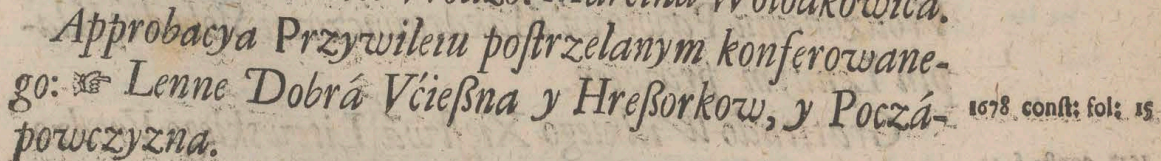 Approbacya Przywileiu postrzelanym konferowane-
go: ☞ Lenne Dobrá Vćießna y Hreßorkow, y Poczá- 1678 const: fol: 15
powczyzna.